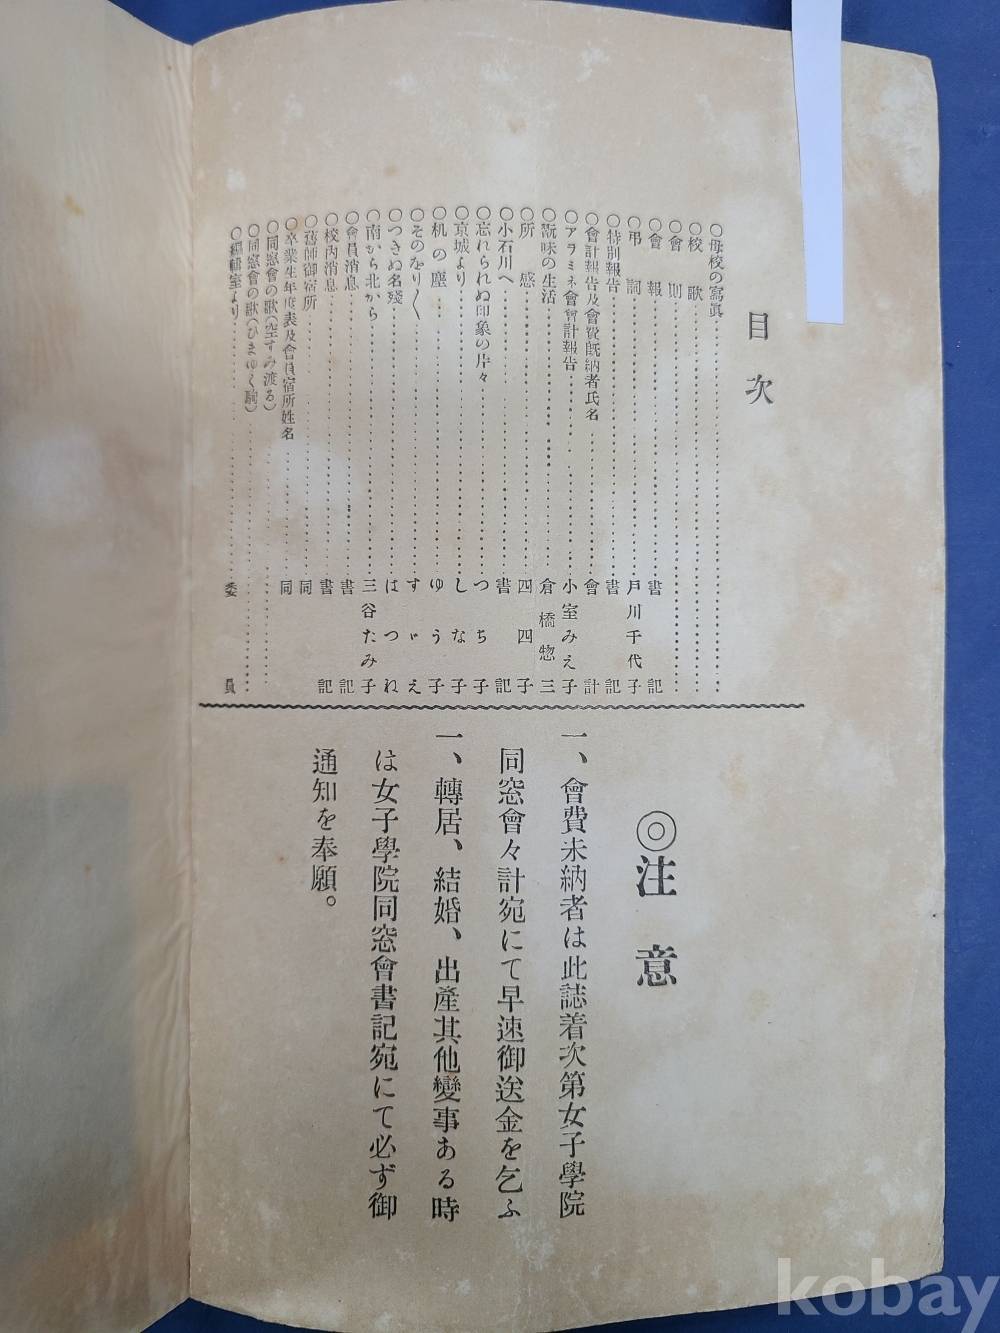 目次
〇母校の寫眞
〇校歌
〇會則
〇會報 書記
〇弔詞 戸川千代子
〇特別報告 書記
〇會計報告及會費既納者氏名 會計
〇アラミネ會會計報告 小室みえ子
〇翫味の生活 倉橋惣三
〇所感 四四子
〇小石川へ 書記
〇忘れられぬ印象の片々 つち子
〇京城より しな子
〇机の塵 ゆう子
〇そのをり〱 すゞえ
〇つきぬ名殘 はつね
〇南から北から 三谷たみ子
〇會員消息 書記
〇校内消息 書記
〇舊師御宿所 同
〇卒業生年度表及會員宿所姓名 同
〇同窓會の歌(空すみ渡る)
〇同窓會の歌(ひまゆく駒)
〇編輯室より 委員
◎注意
一、會費未納者は此誌着次第女子學院
同窓會々計宛にて早速御送金を乞ふ
一、轉居、結婚、出產其他變事ある時
は女子學院同窓會書記宛にて必ず御
通知を奉願。
kobay